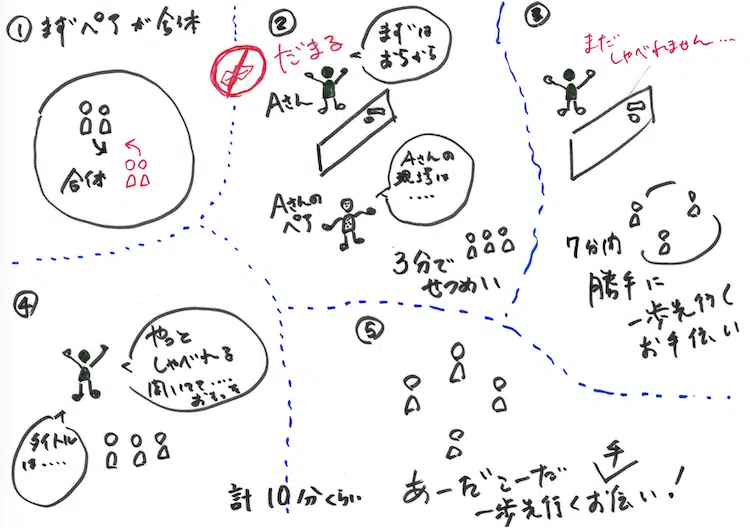 ① まずペアが合体
合体
②
だまる
まずは
おちから
Aさん
Aさんの
現場は
.....
Aさんの
ペア
3分で
せつめい
③
まだ
しゃべれません...
7分間
勝手に
一歩先行く
お手伝い
④
やっと
しゃべれる
聞いてて....
おもった
タイトル
は....
計10分くらい
⑤
あーだこーだ
手
一歩先行くお伝い!